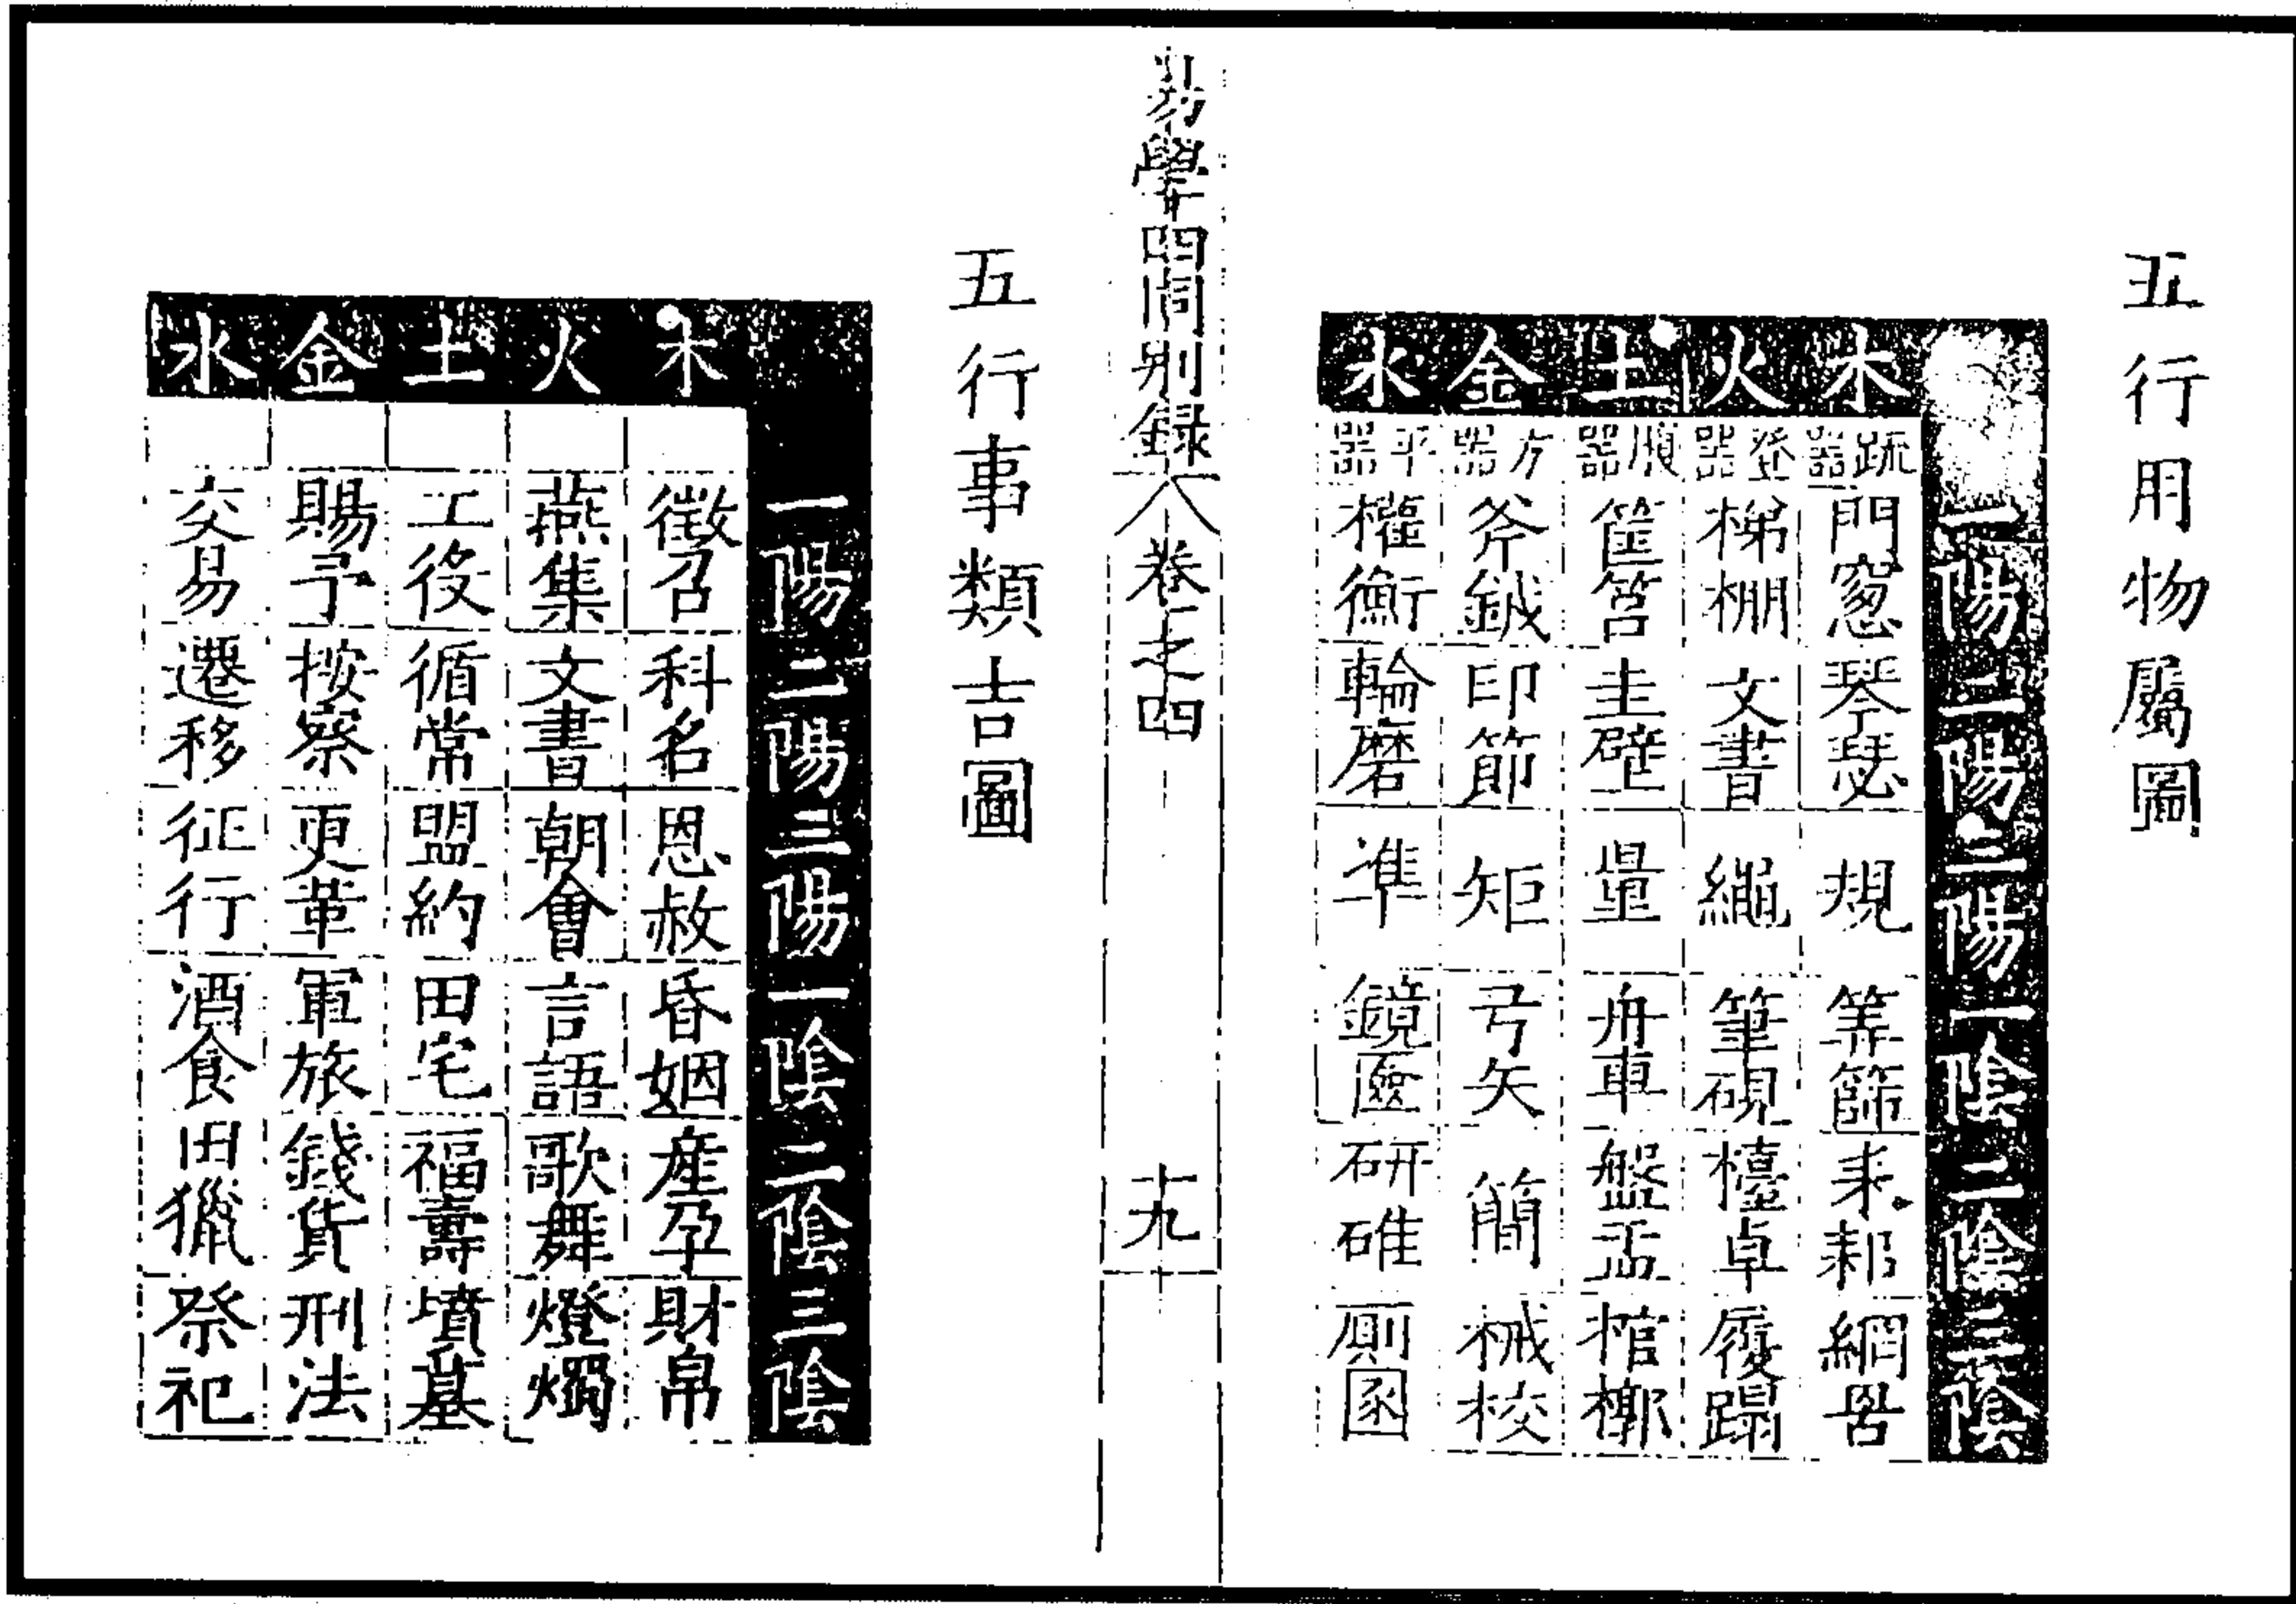 五行用物屬圖
一陽 二陽 三陽 一陰 二陰 三陰
木 疏器 門窓 琴瑟 規 筭篩 耒耜 網罟
火 登器 梯棚 文書 繩 筆硯 檯卓 履蹋
土 順器 筐筥 圭璧 量 舟車 盤盂 棺槨
金 方器 斧鉞 印節 矩 弓矢 簡 械校
水 平器 權衡 輪磨 準 鏡匳 研碓 厠圂
易學四同别録 卷之四 十九
五行事類吉圖
一陽 二陽 三陽 一陰 二陰 三陰
木 徵召 科名 恩赦 昏姻 産孕 財帛
火 燕集 文書 朝會 言語 歌舞 燈燭
土 工役 循常 盟約 田宅 福壽 墳墓
金 賜予 按察 更革 軍旅 錢貨 刑法
水 交易 遷移 征行 酒食 田獵 祭祀